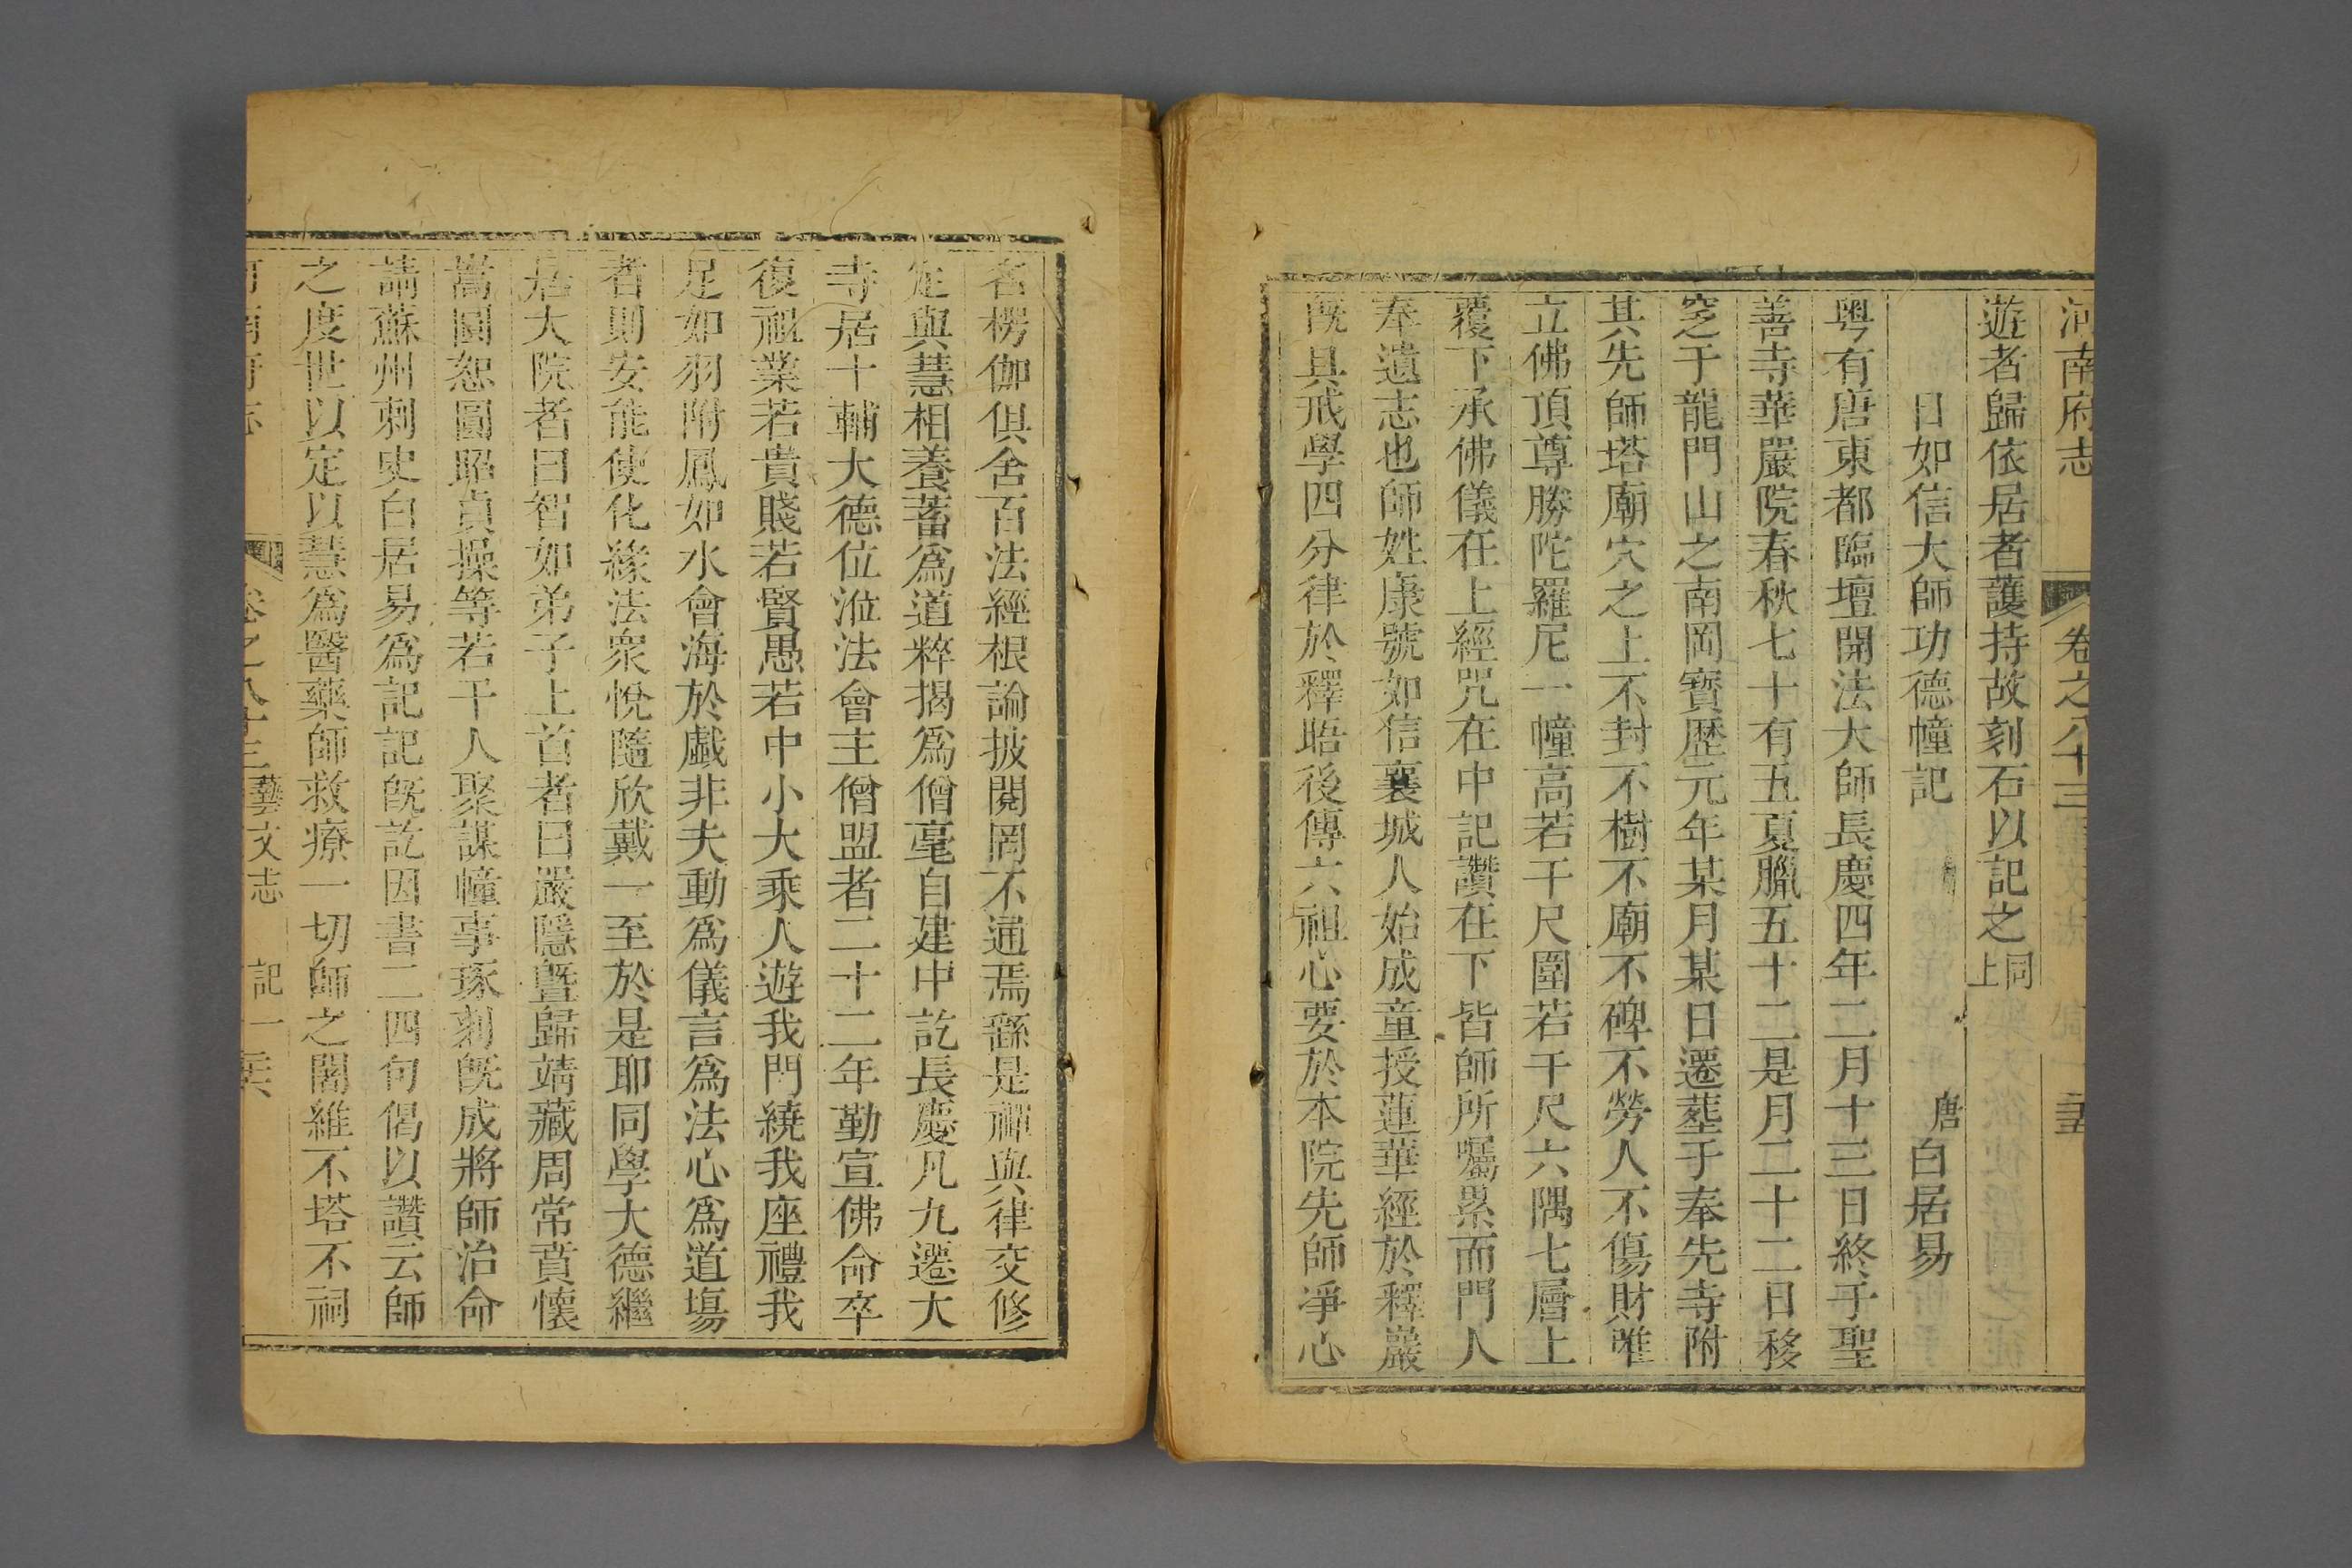 河南府志 卷之八十三 三五
遊者歸依居者護持故刻石以記之同上
日如信大師功德幢記 唐白居易
粵有唐東都臨壇開法大師長慶四年二月十三日終于聖
善寺華嚴院春秋七十有五夏臘五十二是月二十二日移
窆于龍門山之南岡寶歷元年某月某日遷塟于奉先寺附
其先師塔廟穴之上不封不樹不廟不碑不勞人不傷財唯
立佛頂尊勝陀羅尼一幢高若干尺圍若干尺六隅七層上
覆下承佛儀在上經咒在中記讚在下皆師所囑累而門人
奉遺志也師姓康號如信襄城人始成童授蓮華經於釋巖
旣具戒學四分律於釋晤後傳六祖心要於本院先師淨心
名楞伽俱舍百法經根論披閱罔不通焉繇是禪與律交修
定與慧相養蓄爲道粹揭爲僧毫自建中訖長慶凡九遷大
寺居十輔大德位涖法會主僧盟者二十二年勤宣佛命卒
復祖業若貴賤若賢愚若中小大乘人遊我門繞我座禮我
足如羽附鳳如水會海於戲非夫動爲儀言爲法心爲道塲
者則安能使化緣法衆悅隨欣戴一至於是耶同學大德繼
居大院者曰智如弟子上首者曰嚴隱曁歸靖藏周常賁懷
嵩圓恕圓昭貞操等若干人聚謀幢事琢刻旣成將師治命
請蘇州刺史白居易爲記記旣訖因書二四句偈以讚云師
之度世以定以慧爲醫藥師救療一切師之闍維不塔不祠
河南府志 卷之八十三藝文志 記一